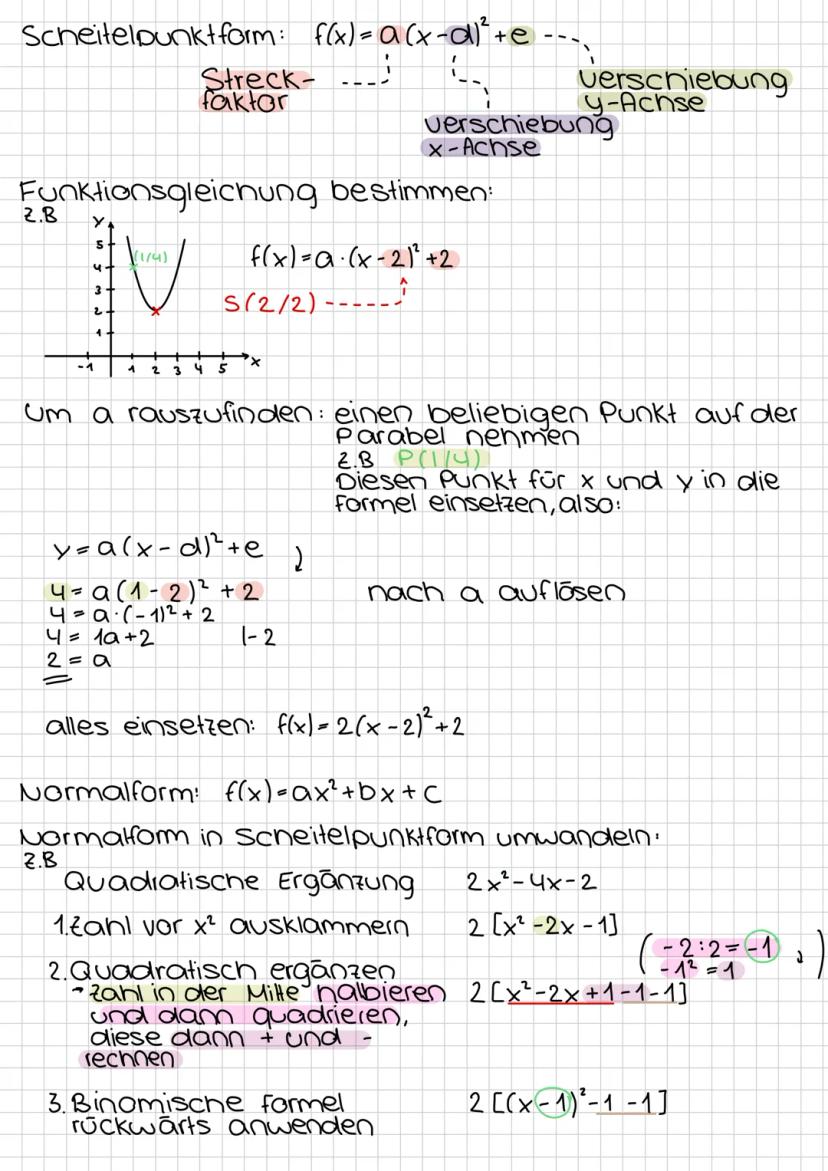 Scheitelpunktform: f(x) = a(x-d)² + e
Streck-
faktor
Verschiebung
y-Achse
Verschiebung
x-Achse
Funktionsgleichung bestimmen:
z.B
y
5
4
3
2
1
(1/4)
-1 1 2 3 4 5 x
f(x) = a·(x-2)² + 2
S(2/2)
Um a rauszufinden: einen beliebigen Punkt auf der
Parabel nehmen
z.B P(1/4)
Diesen Punkt für x und y in die
Formel einsetzen, also:
y = a(x-d)² + e
4 = a(1-2)² + 2 nach a auflösen
4 = a·(-1)² + 2
4 = 1a + 2 |-2
2 = a
alles einsetzen: f(x) = 2(x-2)² + 2
Normalform: f(x) = ax² + bx + c
Normalform in Scheitelpunktform umwandeln:
z.B
Quadratische Ergänzung 2x² - 4x - 2
1. Zahl vor x² ausklammern 2[x² - 2x - 1]
(-2:2 = -1
-1² = 1)
2. Quadratisch ergänzen
- Zahl in der Mitte halbieren 2[x² - 2x + 1 - 1 - 1]
und dann quadrieren,
diese dann + und -
rechnen
3. Binomische Formel 2[(x-1)² - 1 - 1]
rückwärts anwenden